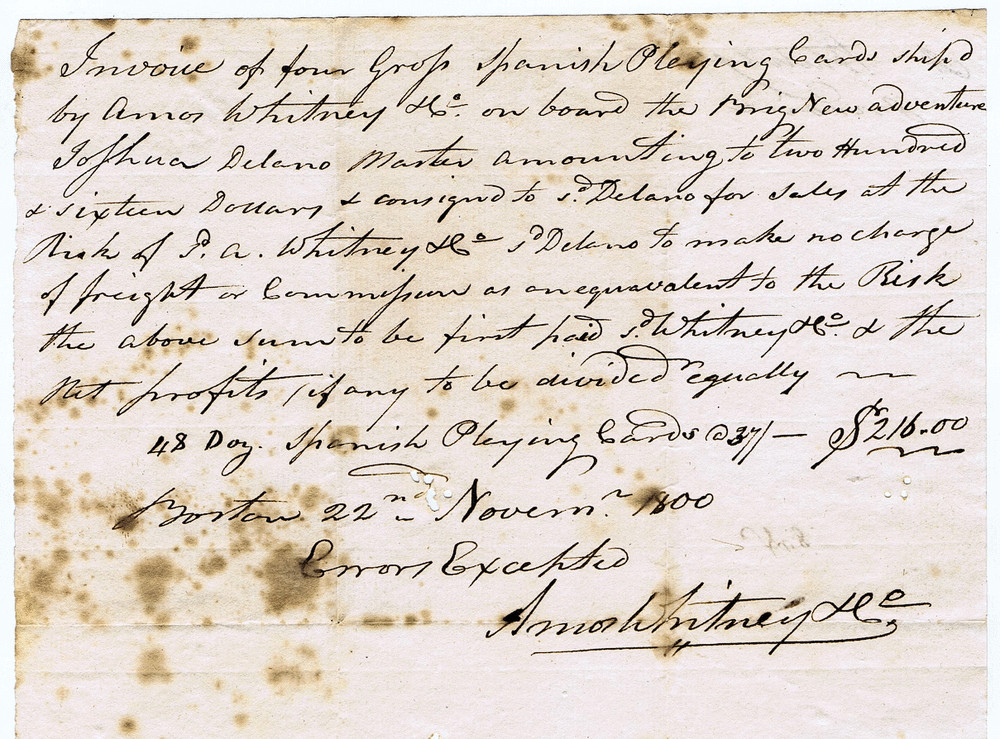 Invoice of four Gross Spanish Pleying Cards ship'd
by Amos Whitney & Co. on board the Brig New adventure
Joshua Delano Master amounting to two Hundred
& sixteen Dollars & consign'd to sd. Delano for sales at the
Risk of sd. A. Whitney & Co sd Delano to make no charge
of freight or Commission as an equavalent to the Risk
the above sum to be first paid sd. Whitney & Co. & the
Net profits, if any to be divided equally
48 Doz. Spanish Pleying Cards @ 27/ — $216.00
Boston 22nd Novemr. 1800
Errors Excepted
Amos Whitney & Co